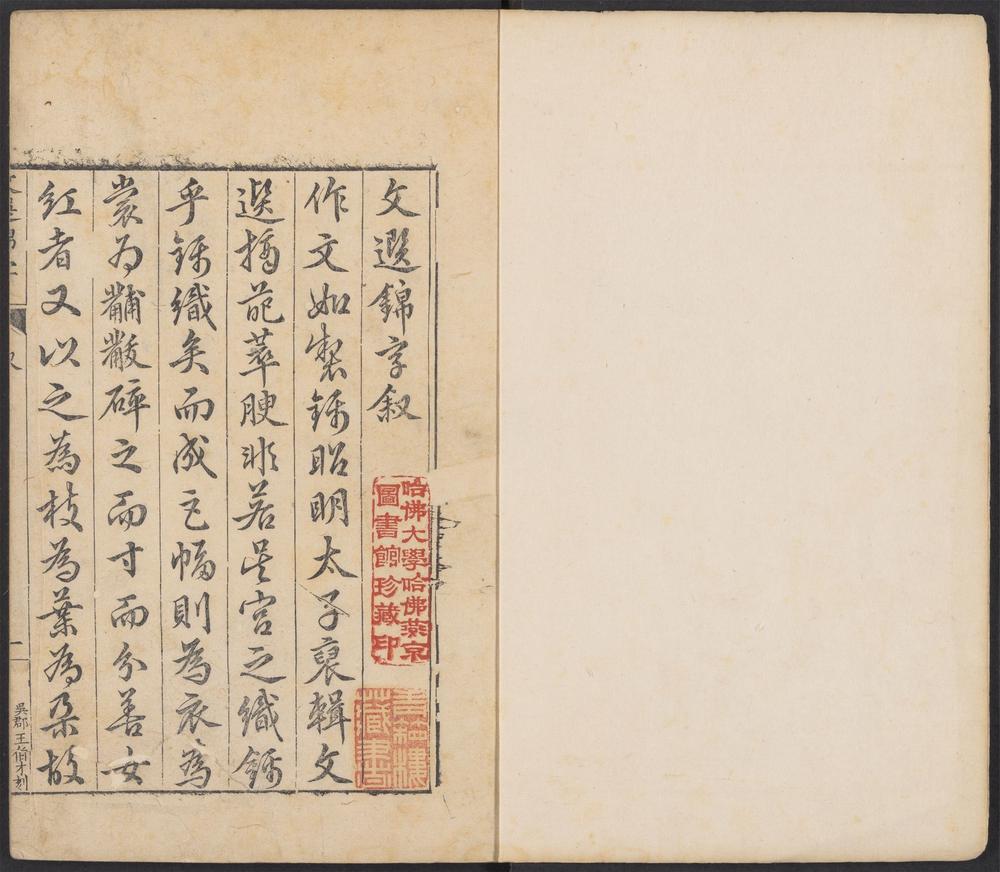 文選錦字叙
哈佛大學哈佛燕京
圖書館珍藏印
作文如製錦昭明太子裒輯文
選摛葩萃腴非若吴宫之織錦
乎錦織矣而成疋幅則為衣為
裳为黼黻碎之而寸而分善女
紅者又以之為枝為葉為朶故
吳郡王才刻